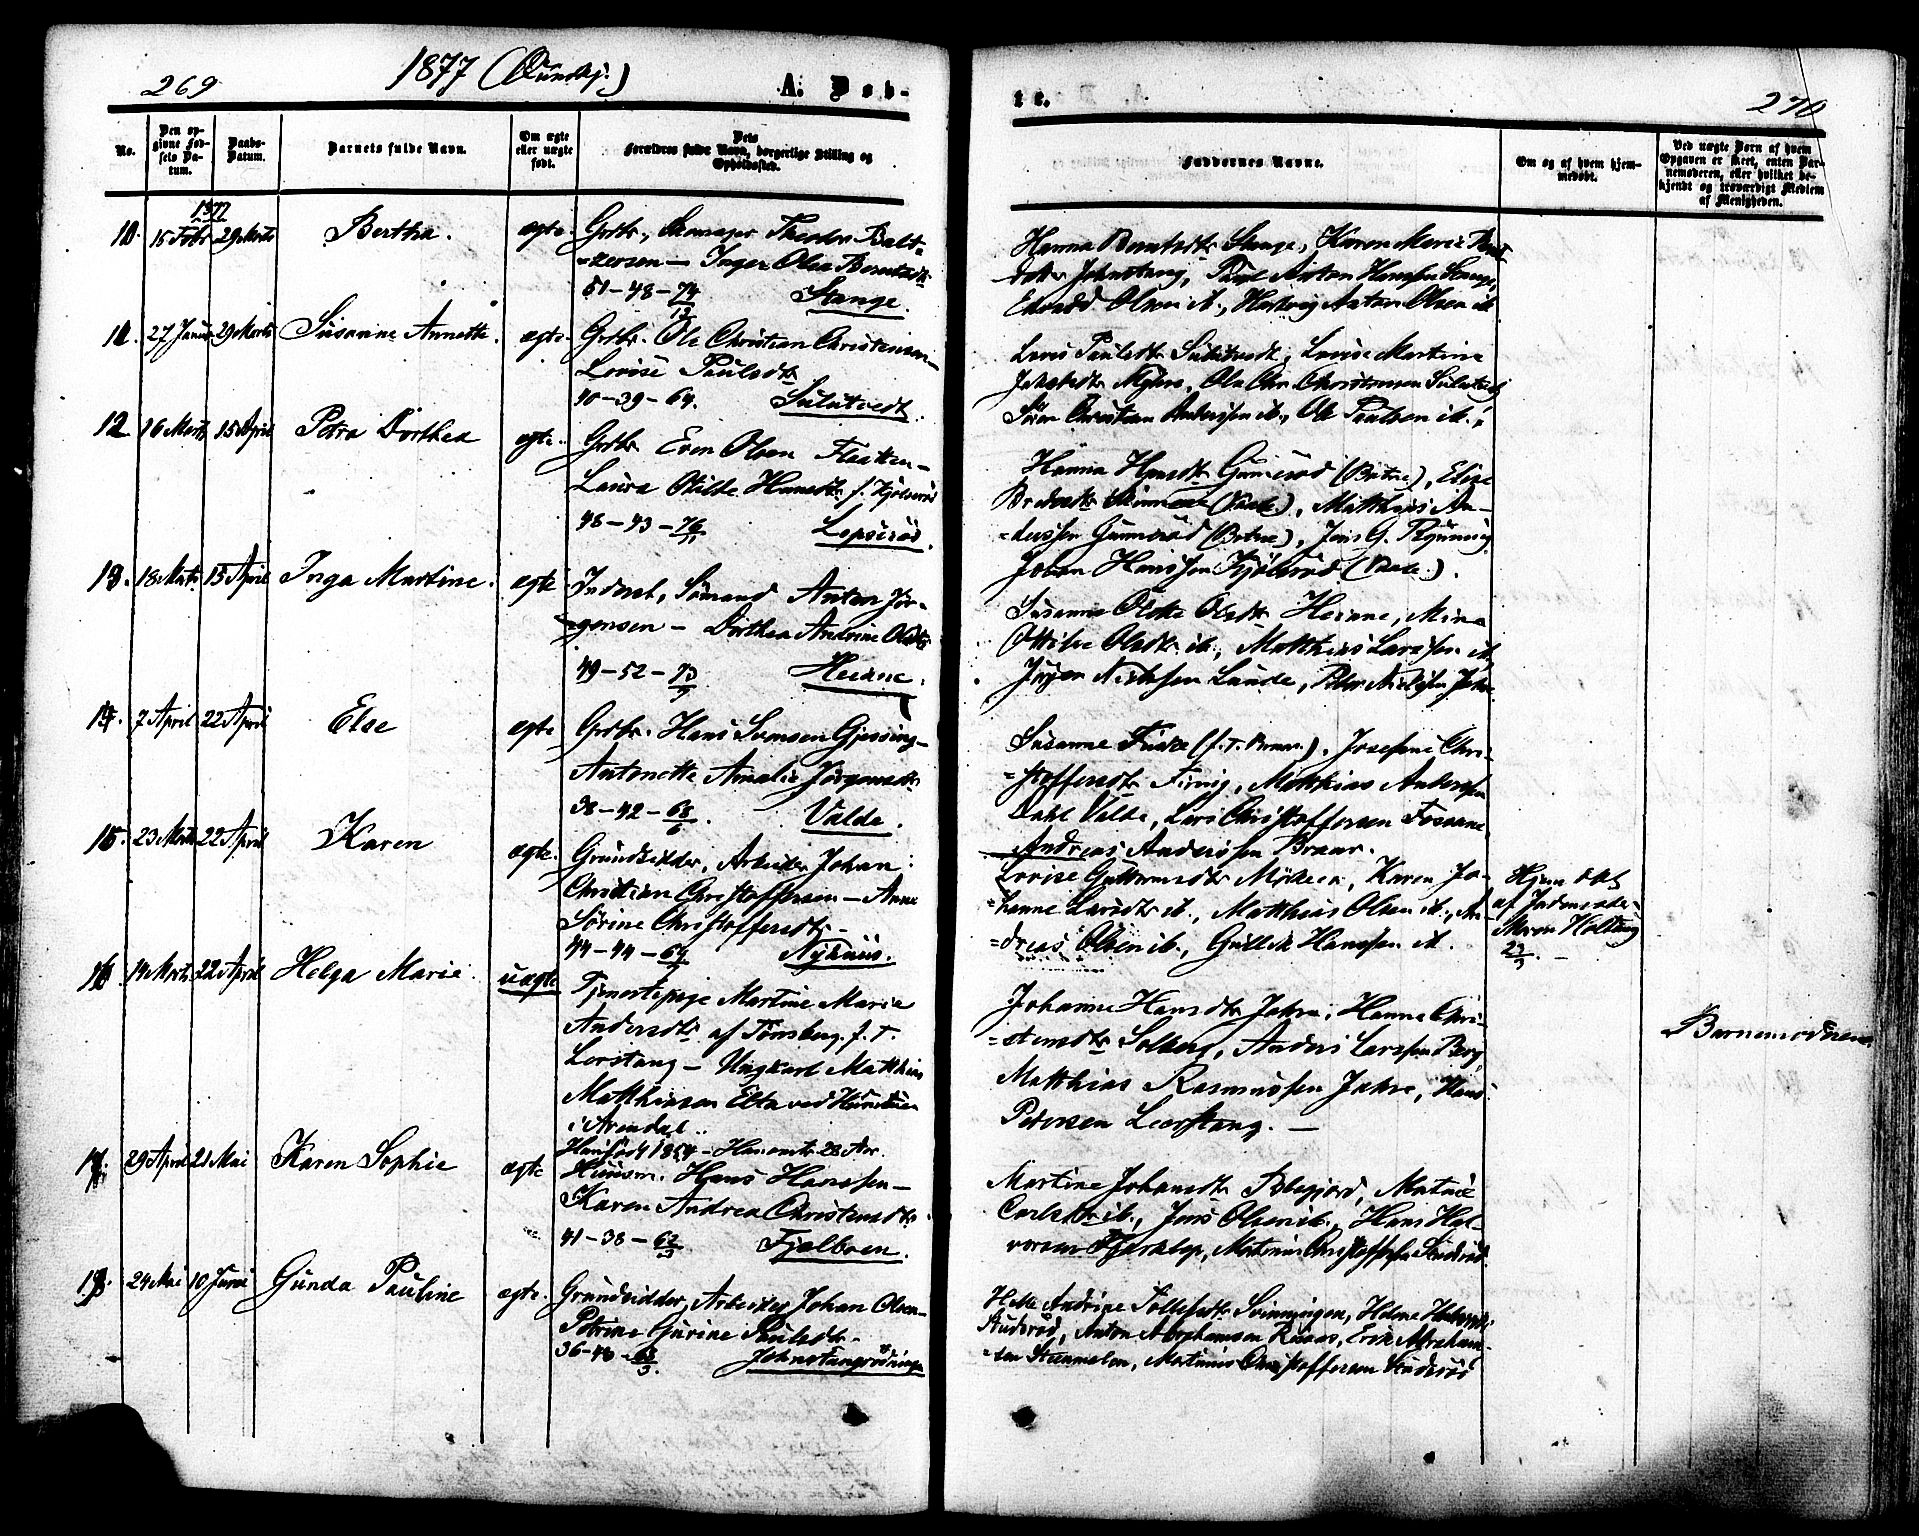 269
1877 (Qvindkj.)
A. Døb-
te.
270
No.
Den op-
givne Fød-
sels Da-
tum.
Daabs-
Datum.
Barnets fulde Navn.
Om ægte
eller uægte
født.
Dets
Forældres fulde Navn, borgerlige Stilling og
Opholdssted.
Faddernes Navne.
Om og af hvem hjem-
medøbt.
Ved uægte Børn af hvem
Opgaven er skeet, enten Bar-
nemoderen, eller hvilket be-
kjendt og troværdigt Medlem
af Menigheden.
1877
10. 15 Febr 29 Marts Bertha. ægte. Grdbr., Theodor Balt-
zersen — Inger Olea Berntsdtr
51-48-74/12 Stange.
Hanna Berntsdtr Stange, Karen Marie
Johnstang, Paul Anton Hanssen Stange,
Edvard Olsen ib., Hartvig Anton Olsen ib.
11. 27 Januar 29 Marts Susanne Annette. ægte. Grdbr. Ole Christian Christensen
Lovise Paulsdtr
40-39-64. Sulutvedt.
Paulsdtr Sulutvedt, Lovise Martine
Ole Chr. Christensen
Søren Christian Anderssen ib., Ole Paulsen ib.
12 16 Marts 15 April Petra Dorthea ægte. Grdbr Even Olsen Flaatten —
Laura Otilde Hansdtr f. Kjølerød
48-43-76/11 Lepserød.
Hanna Hansdtr Gunnerød (Botne), Elise
Matthias An-
derssen Gunnerød (Botne), Jens G. Rynning
Johan Hanssen Kjølerød
13. 18 Marts 15 April Inga Martine. ægte Inderst, Sømand Anton Jør-
gensen — Dorthea Andrine Olsdtr
49-52-73/9 Heiane.
Susanne Olsdtr Heiane, Mina
Ottilie Olsdtr ib., Matthias Larssen ib,
Jørgen Nielssen Lunde, Peder Nielssen
14. 7 April 22 April Else ægte Grdbr. Hans Svensen Gjessing —
Antonette Amalie Jørgensdtr
38-42-68/6. Valde.
Susanne Fuske Josefine Chri-
stoffersdtr Matthias Anderssen
Dahl Valde, Lars Christoffersen Fossane
Andreas Anderssen Braar.
15. 23 Marts 22 April Karen ægte. Grundsidder, Arbeider Johan
Christian Christoffersen — Anne
Sørine Christoffersdtr —
44-44-69/7 Nyhuus.
Lovise Guttormsdtr Karen Jo-
hanne Larsdtr ib., Matthias Olsen ib., An-
dreas Olsen ib., Gullik Hanssen ib.
Hjemdøbt
af Jordemoder
Maren Holtung
23/3 —
16 14 Marts 22 April Helga Marie uægte Tjenestepige Martine Marie
Andersdtr af Tønsberg, f. T.
Lerstang — Ungkarl Matthias
Matthiasen
i Arendal.
Han født 1854 — Hun omtr. 28 Aar.
Johanne Hansdtr Jahre, Hanne Chri-
stensdtr Solberg, Anders Larssen Berg,
Matthias Rasmussen Jahre, Hans
Petersen Leerstang. —
Barnemoderen
17. 29 April 21 Mai Karen Sophie ægte Huusm. Hans Hanssen —
Karen Andrea Christensdtr
41-38-62/3 Fjælboen.
Martine Johansdtr Matne
ib., Jens Olsen ib., Hans Hal-
vorsen
18. 24 Mai 10 Juni Gunda Pauline ægte. Grundsidder, Arbeider Johan Olsen —
Petrine Gurine Paulsdtr —
36-43-63/3. Johnstangrødningen
Andrine Tollefsdtr Svinningen, Helene
Studsrød, Anton Abrahamsen Ruaas, Erik Abraham-
sen Strømmelen, Martinius Christoffersen Studsrød